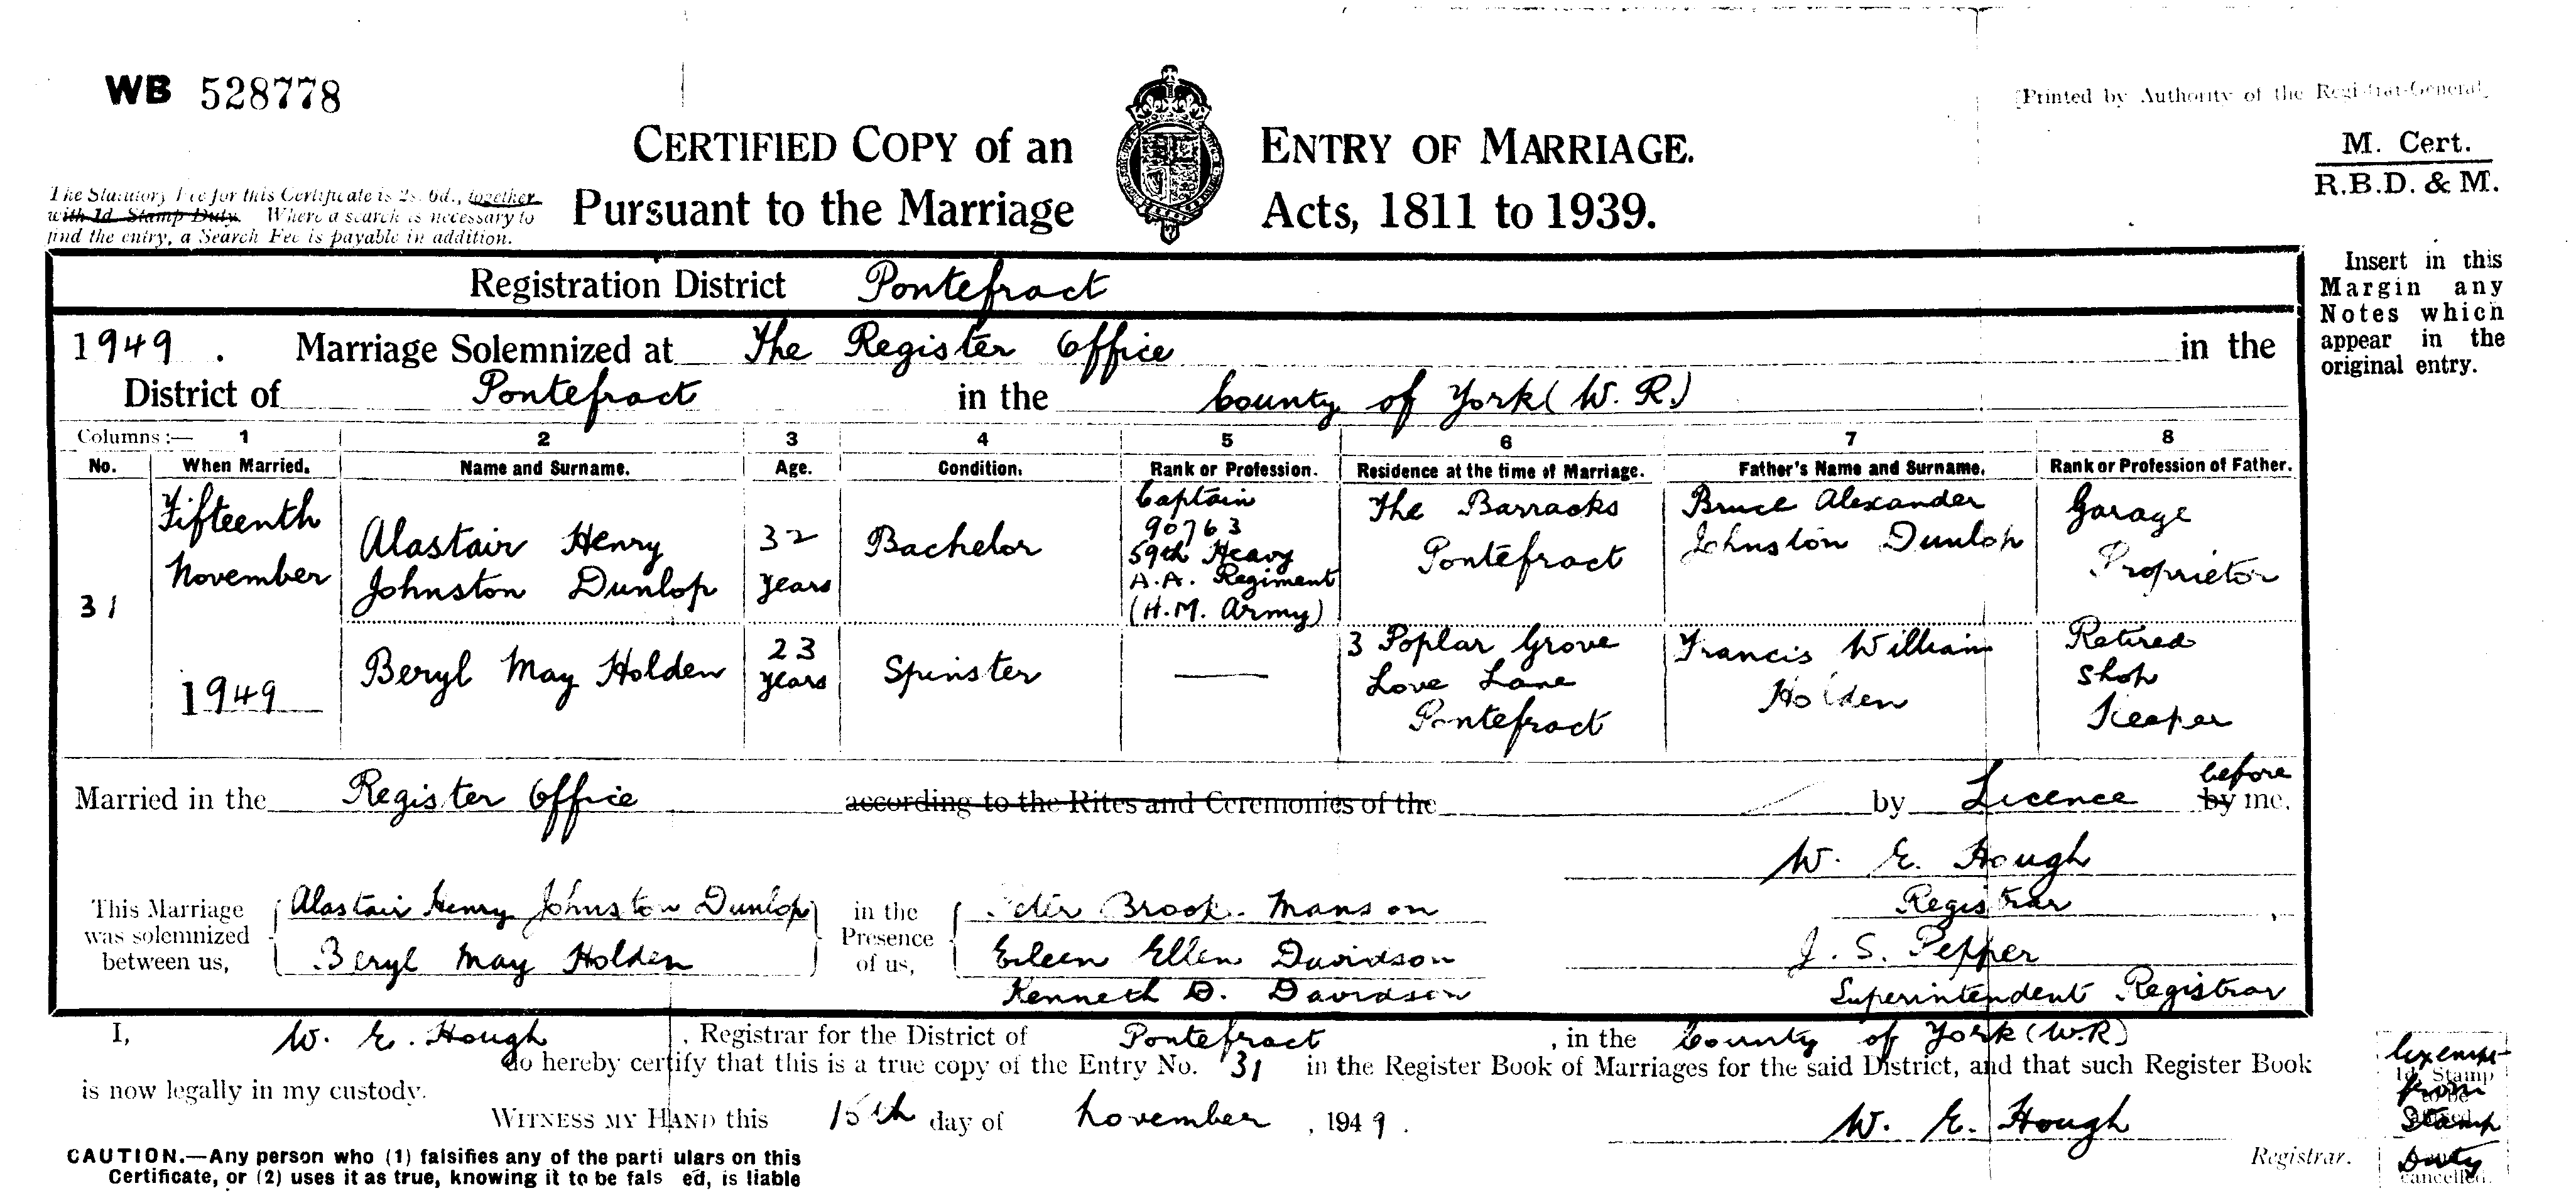 WB 528778
[Printed by Authority of the Registrar-General]
CERTIFIED COPY of an ENTRY OF MARRIAGE.
Pursuant to the Marriage Acts, 1811 to 1939.
M. Cert.
R.B.D. & M.
The Statutory Fee for this Certificate is 2s. 6d., together
with 1d. Stamp Duty. Where a search is necessary to
find the entry, a Search Fee is payable in addition.
Insert in this
Margin any
Notes which
appear in the
original entry.
Registration District Pontefract
1949. Marriage Solemnized at The Register Office in the
District of Pontefract in the County of York (W.R.)
Columns:— 1 2 3 4 5 6 7 8
No. When Married. Name and Surname. Age. Condition. Rank or Profession. Residence at the time of Marriage. Father's Name and Surname. Rank or Profession of Father.
31
Fifteenth
November
1949
Alastair Henry
Johnston Dunlop
32
years
Bachelor
Captain
90763
59th Heavy
A.A. Regiment
(H.M. Army)
The Barracks
Pontefract
Bruce Alexander
Johnston Dunlop
Garage
Proprietor
Beryl May Holden
23
years
Spinster
———
3 Poplar Grove
Love Lane
Pontefract
Francis William
Holden
Retired
Shop
Keeper
Married in the Register Office according to the Rites and Ceremonies of the by Licence before by me,
W. E. Hough
Registrar
J. S. Pepper
Superintendent Registrar
This Marriage
was solemnized
between us,
Alastair Henry Johnston Dunlop
Beryl May Holden
in the
Presence
of us,
Peter Brook Manson
Eileen Ellen Davidson
Kenneth D. Davidson
I, W. E. Hough, Registrar for the District of Pontefract, in the County of York (W.R)
do hereby certify that this is a true copy of the Entry No. 31 in the Register Book of Marriages for the said District, and that such Register Book
is now legally in my custody.
WITNESS MY HAND this 15th day of November, 1949.
W. E. Hough
Registrar.
Exempt
1d. Stamp
from
to be
Stamp
Duty
cancelled.
CAUTION.—Any person who (1) falsifies any of the parti ulars on this
Certificate, or (2) uses it as true, knowing it to be fals ed, is liable